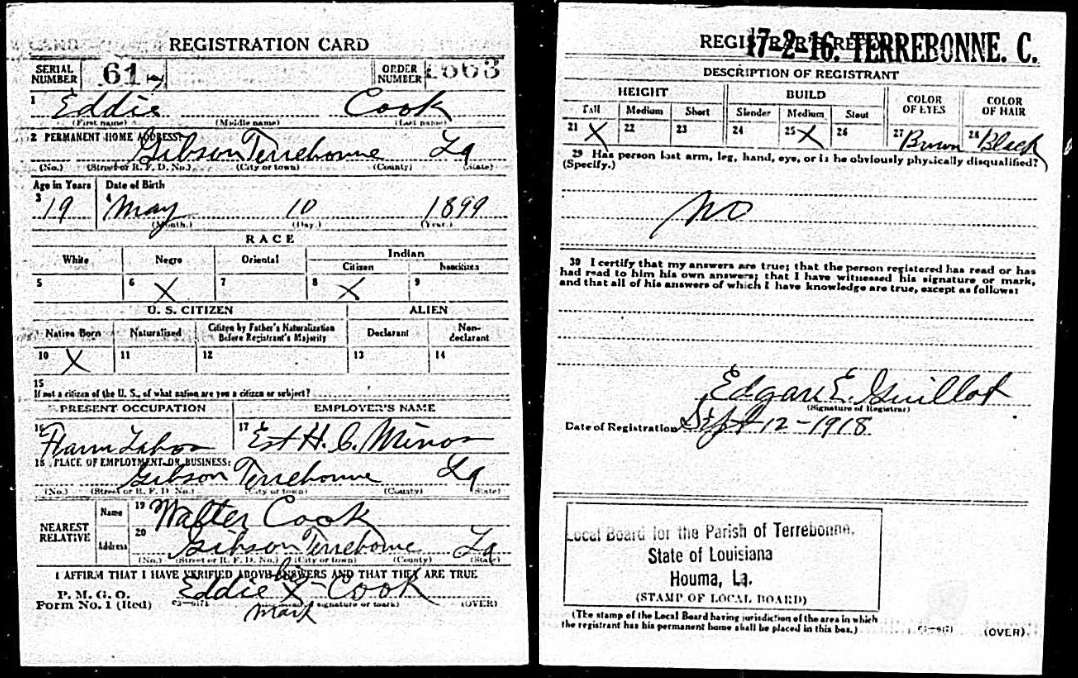 REGISTRATION CARD
SERIAL NUMBER 61 ORDER NUMBER
1 Eddie Cook
(First name) (Middle name) (Last name)
2 PERMANENT HOME ADDRESS:
Gibson Terrebonne La
(No.) (Street or R. F. D. No.) (City or town) (County) (State)
Age in Years Date of Birth
3 19 4 May 10 1899
(Month.) (Day.) (Year.)
RACE
White Negro Oriental Indian
Citizen Noncitizen
5 6 X 7 8 X 9
U. S. CITIZEN ALIEN
Native Born Naturalized Citizen by Father's Naturalization Before Registrant's Majority Declarant Non-declarant
10 X 11 12 13 14
15
If not a citizen of the U. S., of what nation are you a citizen or subject?
PRESENT OCCUPATION EMPLOYER'S NAME
16 Farm Labor 17 Est H. C. Minor
18 PLACE OF EMPLOYMENT OR BUSINESS:
Gibson Terrebonne La
(No.) (Street or R. F. D. No.) (City or town) (County) (State)
NEAREST RELATIVE Name 19 Walter Cook
Address 20 Gibson Terrebonne La
(No.) (Street or R. F. D. No.) (City or town) (County) (State)
I AFFIRM THAT I HAVE VERIFIED ABOVE ANSWERS AND THAT THEY ARE TRUE
P. M. G. O.
Form No. 1 (Red)
his
Eddie X Cook
(Registrant's signature or mark) (OVER)
mark
REGISTRAR'S REPORT
17-2-16. TERREBONNE. C.
DESCRIPTION OF REGISTRANT
HEIGHT BUILD COLOR OF EYES COLOR OF HAIR
Tall Medium Short Slender Medium Stout
21 X 22 23 24 25 X 26 27 Brown 28 Black
29 Has person lost arm, leg, hand, eye, or is he obviously physically disqualified?
(Specify.)
no
30 I certify that my answers are true; that the person registered has read or has
had read to him his own answers; that I have witnessed his signature or mark,
and that all of his answers of which I have knowledge are true, except as follows:
Edgar E. Guillot
(Signature of Registrar)
Date of Registration Sept 12-1918
Local Board for the Parish of Terrebonne,
State of Louisiana
Houma, La.
(STAMP OF LOCAL BOARD)
(The stamp of the Local Board having jurisdiction of the area in which
the registrant has his permanent home shall be placed in this box.)
(OVER).